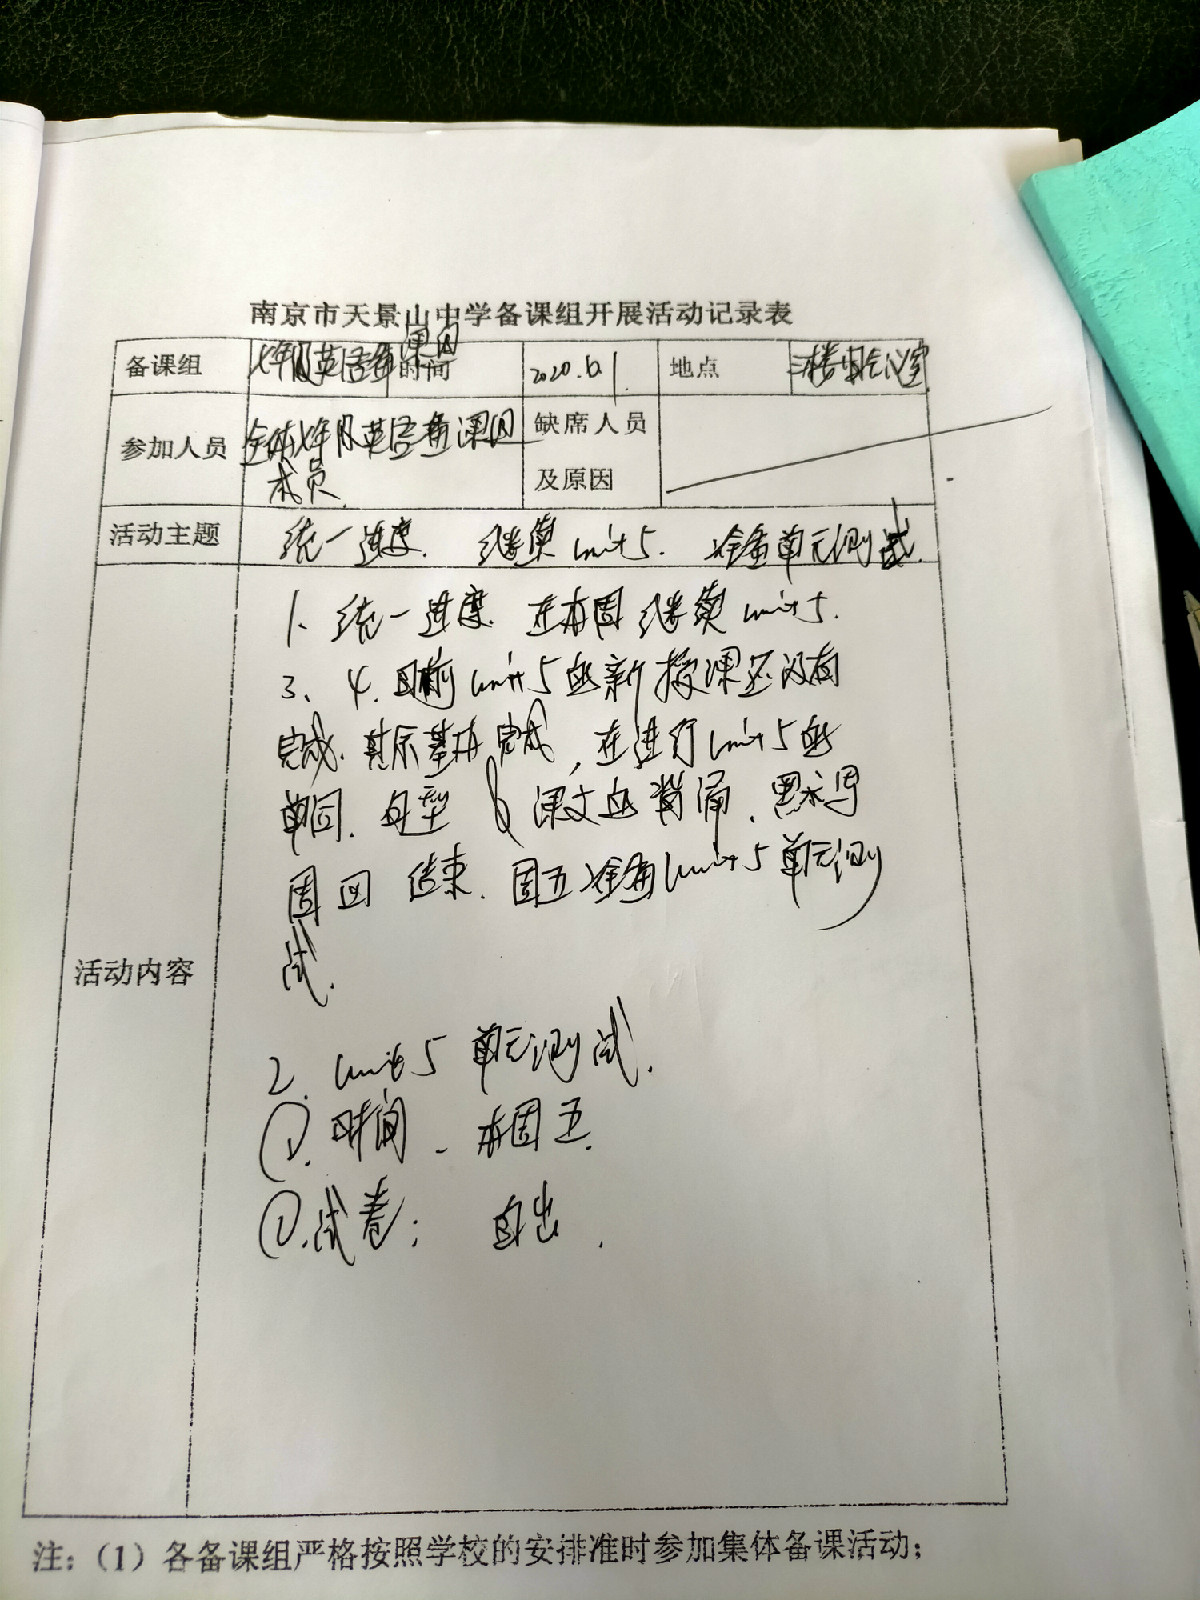 南京市天景山中学备课组开展活动记录表
备课组 七年级英语备课组 时间 2020.12.1 地点 三楼会议室
参加人员 全体七年级英语备课组 缺席人员
成员 及原因
活动主题 统一进度. 继续unit 5. 准备单元测试.
1、统一进度. 在本周继续unit 5.
3、4.目前unit 5的新授课还没有
完成. 其余基本完成, 在进行unit 5的
单词. 句型 课文的背诵. 默写
周四结束. 周五准备unit 5单元测
试.
活动内容
2. unit 5 单元测试.
①.时间. 本周五.
①.试卷: 自出.
注:(1)各备课组严格按照学校的安排准时参加集体备课活动;